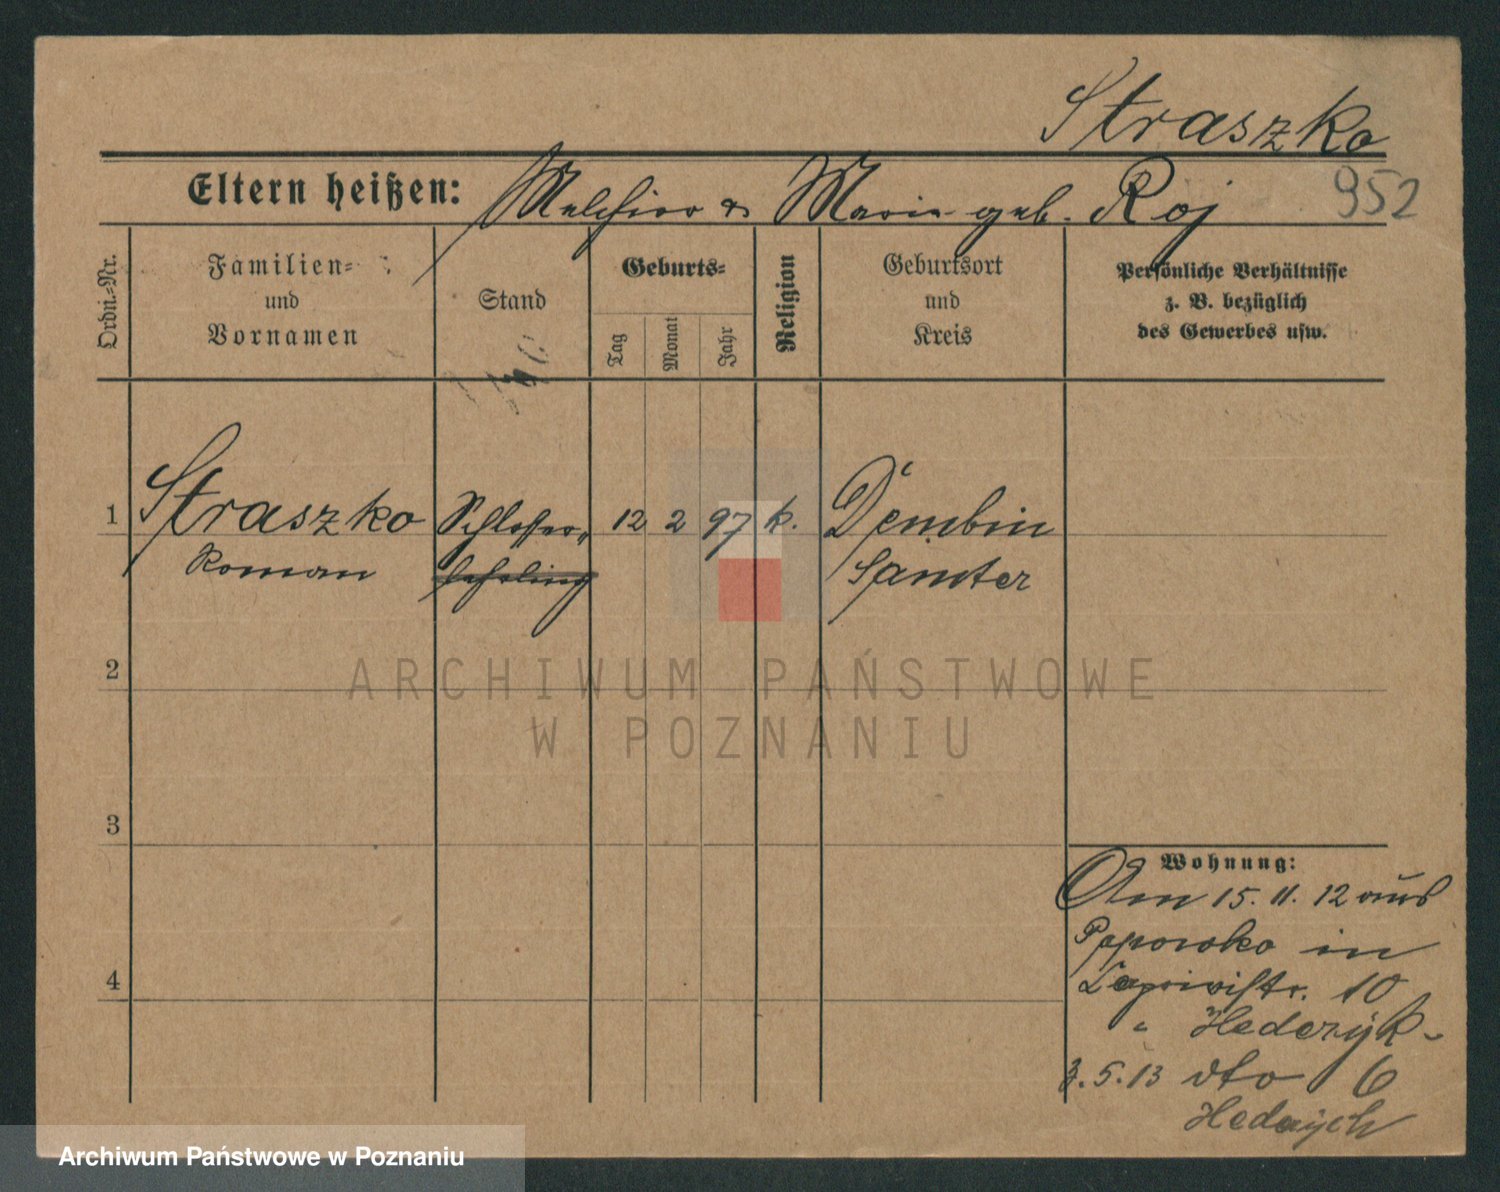 Straszko
Eltern heißen: Melchior & Marie geb. Roj 952
Ordn.-Nr.
Familien-
und
Vornamen
Stand
Geburts-
Tag
Monat
Jahr
Religion
Geburtsort
und
Kreis
Persönliche Verhältnisse
z. B. bezüglich
des Gewerbes usw.
1 Straszko Schlosser- 12 2 97 k. Dembin
Roman lehrling Samter
2
3
4
Wohnung:
Am 15. 11. 12 aus
Paporoko in
Caprivistr. 10
" 
3. 5. 13 dto 6
ARCHIWUM PAŃSTWOWE
W POZNANIU
Archiwum Państwowe w Poznaniu